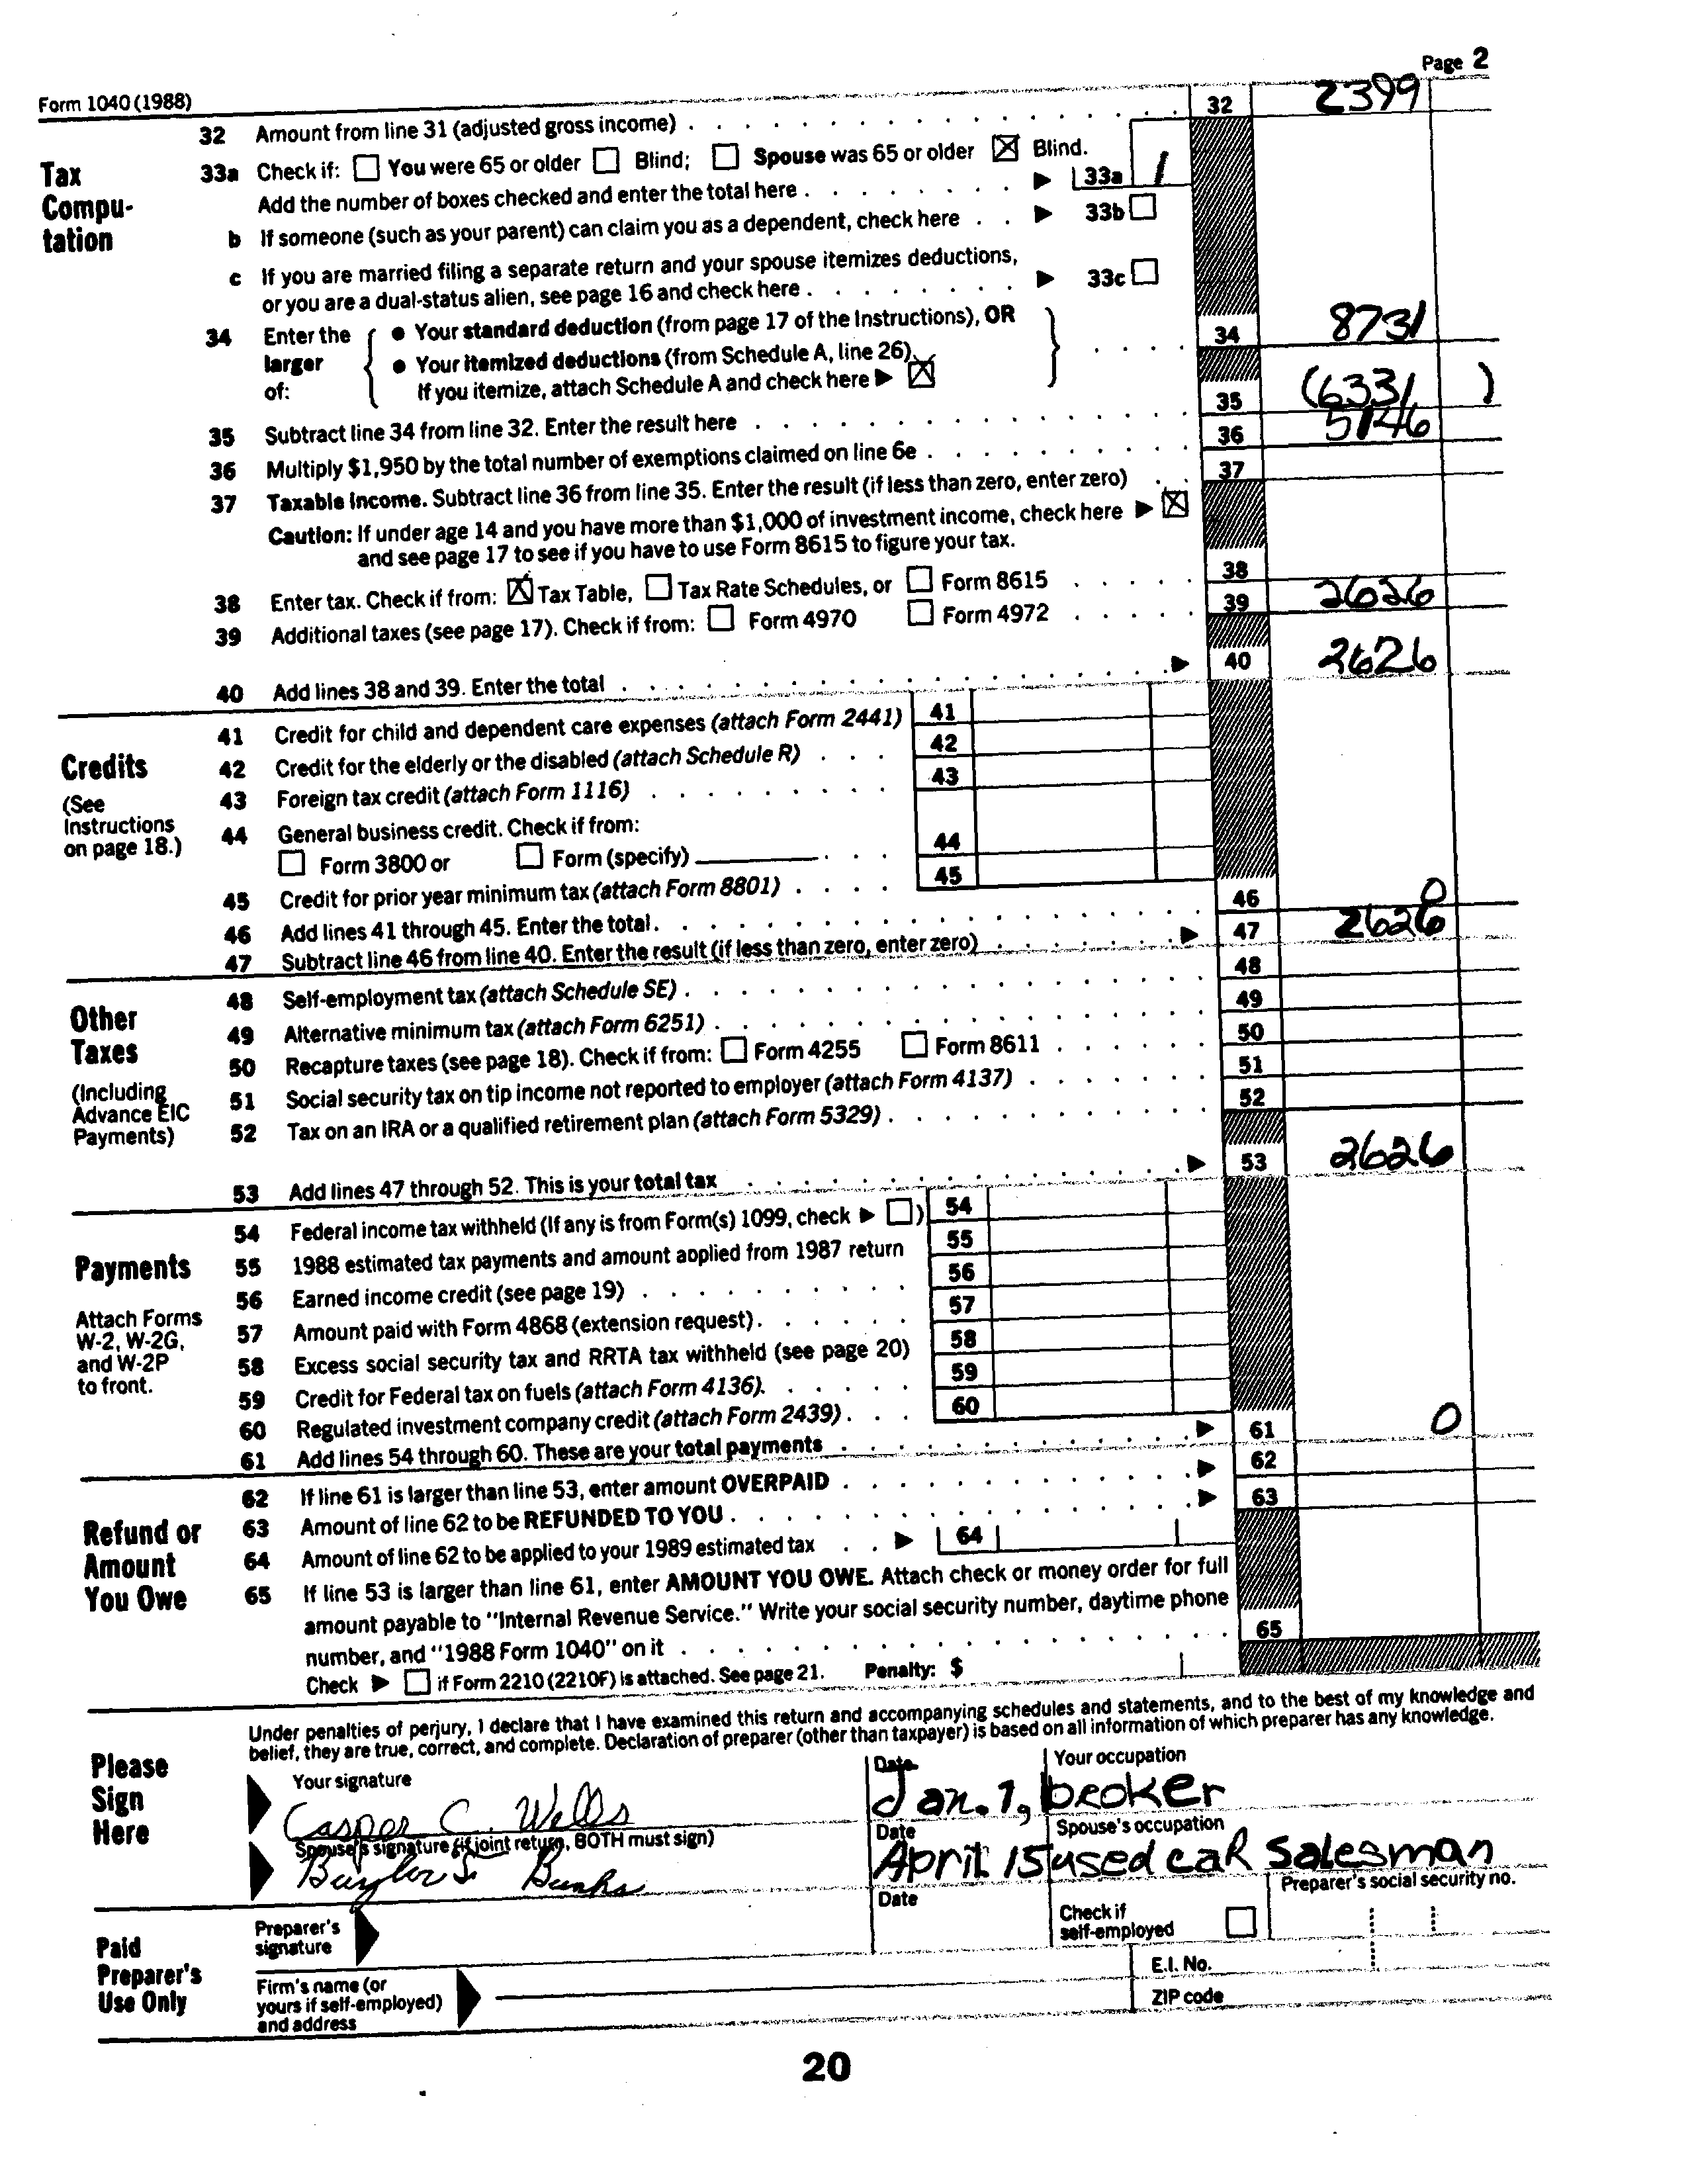 Page 2
Form 1040 (1988)
32 Amount from line 31 (adjusted gross income) . . . 32 2399
Tax Compu- tation
33a Check if: You were 65 or older Blind; Spouse was 65 or older ☒ Blind.
Add the number of boxes checked and enter the total here . . . 33a 1
b If someone (such as your parent) can claim you as a dependent, check here . . 33b
c If you are married filing a separate return and your spouse itemizes deductions,
or you are a dual-status alien, see page 16 and check here . . . 33c
34 Enter the larger of:
• Your standard deduction (from page 17 of the Instructions), OR
• Your itemized deductions (from Schedule A, line 26).
If you itemize, attach Schedule A and check here ► ☒
34 8731
35 Subtract line 34 from line 32. Enter the result here . . . 35 (6331)
36 Multiply $1,950 by the total number of exemptions claimed on line 6e . . . 36 5146
37 Taxable Income. Subtract line 36 from line 35. Enter the result (if less than zero, enter zero) . . 37
Caution: If under age 14 and you have more than $1,000 of investment income, check here ► ☒
and see page 17 to see if you have to use Form 8615 to figure your tax.
38 Enter tax. Check if from: ☒ Tax Table, Tax Rate Schedules, or Form 8615 . . . 38
39 Additional taxes (see page 17). Check if from: Form 4970 Form 4972 . . . 39 2626
40 Add lines 38 and 39. Enter the total . . . ► 40 2626
Credits
(See Instructions on page 18.)
41 Credit for child and dependent care expenses (attach Form 2441) 41
42 Credit for the elderly or the disabled (attach Schedule R) . . . 42
43 Foreign tax credit (attach Form 1116) . . . 43
44 General business credit. Check if from:
Form 3800 or Form (specify) . . . 44
45 Credit for prior year minimum tax (attach Form 8801) . . . 45
46 Add lines 41 through 45. Enter the total . . . 46 0
47 Subtract line 46 from line 40. Enter the result (if less than zero, enter zero) . . . ► 47 2626
Other Taxes
(Including Advance EIC Payments)
48 Self-employment tax (attach Schedule SE) . . . 48
49 Alternative minimum tax (attach Form 6251) . . . 49
50 Recapture taxes (see page 18). Check if from: Form 4255 Form 8611 . . . 50
51 Social security tax on tip income not reported to employer (attach Form 4137) . . . 51
52 Tax on an IRA or a qualified retirement plan (attach Form 5329) . . . 52
53 Add lines 47 through 52. This is your total tax . . . ► 53 2626
Payments
Attach Forms W-2, W-2G, and W-2P to front.
54 Federal income tax withheld (If any is from Form(s) 1099, check ► ) 54
55 1988 estimated tax payments and amount applied from 1987 return 55
56 Earned income credit (see page 19) . . . 56
57 Amount paid with Form 4868 (extension request) . . . 57
58 Excess social security tax and RRTA tax withheld (see page 20) 58
59 Credit for Federal tax on fuels (attach Form 4136). . . . 59
60 Regulated investment company credit (attach Form 2439) . . . 60
61 Add lines 54 through 60. These are your total payments . . . ► 61 0
Refund or Amount You Owe
62 If line 61 is larger than line 53, enter amount OVERPAID . . . ► 62
63 Amount of line 62 to be REFUNDED TO YOU . . . ► 63
64 Amount of line 62 to be applied to your 1989 estimated tax . . ► 64
65 If line 53 is larger than line 61, enter AMOUNT YOU OWE. Attach check or money order for full
amount payable to "Internal Revenue Service." Write your social security number, daytime phone
number, and "1988 Form 1040" on it . . . 65
Check ► if Form 2210 (2210F) is attached. See page 21. Penalty: $
Please Sign Here
Under penalties of perjury, I declare that I have examined this return and accompanying schedules and statements, and to the best of my knowledge and
belief, they are true, correct, and complete. Declaration of preparer (other than taxpayer) is based on all information of which preparer has any knowledge.
Your signature Date Your occupation
Casper C. Wells Jan. 1, broker
Spouse's signature (if joint return, BOTH must sign) Date Spouse's occupation
Baylor J. Banks April 15 used car salesman
Paid Preparer's Use Only
Preparer's signature Date Check if self-employed Preparer's social security no.
Firm's name (or yours if self-employed) and address E.I. No.
ZIP code
20